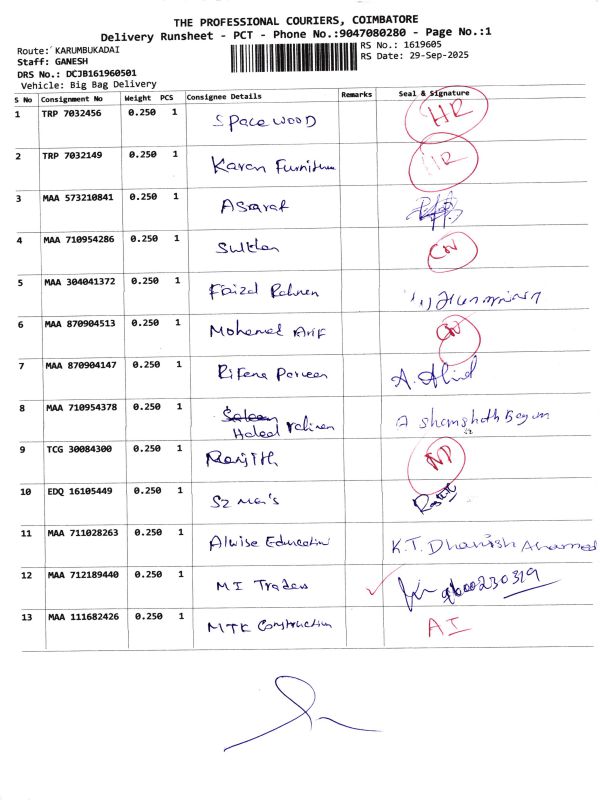 THE PROFESSIONAL COURIERS, COIMBATORE
Delivery Runsheet - PCT - Phone No.:9047080280 - Page No.:1
Route: KARUMBUKADAI RS No.: 1619605
Staff: GANESH RS Date: 29-Sep-2025
DRS No.: DCJB161960501
Vehicle: Big Bag Delivery
S No Consignment No Weight PCS Consignee Details Remarks Seal & Signature
1 TRP 7032456 0.250 1 Spacewood HR
2 TRP 7032149 0.250 1 Karan Furniture HR
3 MAA 573210841 0.250 1 Asaraf
4 MAA 710954286 0.250 1 Sultan CN
5 MAA 304041372 0.250 1 Faizal Rahman
6 MAA 870904513 0.250 1 Mohamed Arif CN
7 MAA 870904147 0.250 1 Rifana Parveen A.
8 MAA 710954378 0.250 1 Saleem
Haleed Rahman A Shamshath Begum
9 TCG 30084300 0.250 1 Ranjith ND
10 EDQ 16105449 0.250 1
11 MAA 711028263 0.250 1 Alwise Education K.T. Dhanish Ahamed
12 MAA 712189440 0.250 1 MI Traders 9600230319
13 MAA 111682426 0.250 1 MTK Construction AI